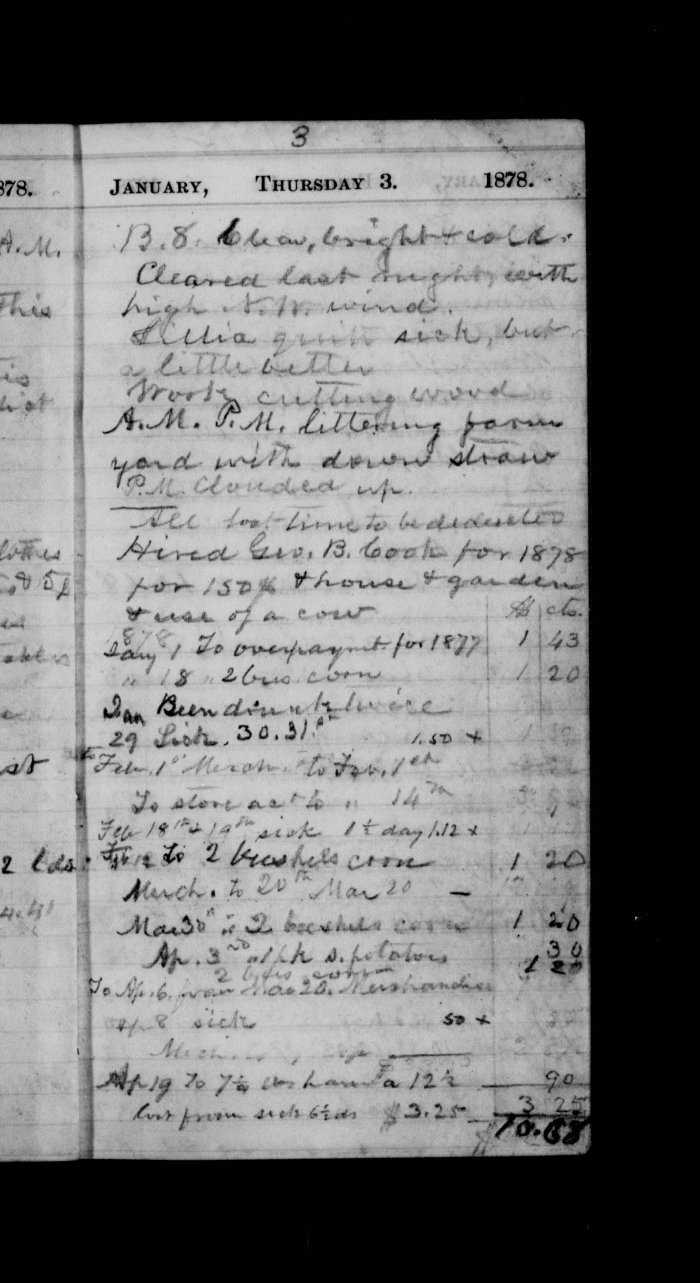 3
878.
JANUARY, THURSDAY 3. 1878.
A.M.
B. 8. Clear, bright & cold.
Cleared last night, with
This
high N.W. wind.
Lillia quite sick, but
a little better
Work, cutting wood
A.M. P.M. littering farm
yard with down straw
P.M. Clouded up.
All lost time to be deducted
Hired Geo. B. Cook for 1878
for 150$ & house & garden
& use of a cow $ cts.
1878
Jany 1 To overpaymt. for 1877 1 43
" 18 " 2 bus. corn 1 20
Jan Been drunk twice
29 Sick. 30. 31. 1.50 x
st
Feb. 1st Merch. to Feb. 1st
To store act to " 14th
Feb 18th & 19th sick 1½ day 1.12 x
2 lds.
Feb 12 To 2 bushels corn 1 20
Merch. to 20th Mar 20 —
Mar 30th " 2 bushels corn 1 20
Ap. 3rd " 1 pk s. potatoes 30
2 bus corn 1 20
To Ap. 6. from Mar 20. Merchandise
Ap 8 sick 50 x
Ap 19 To 7¼ lbs ham a 12½ 90
Lost from sick 6½ ds $3.25 3 25
$10.68